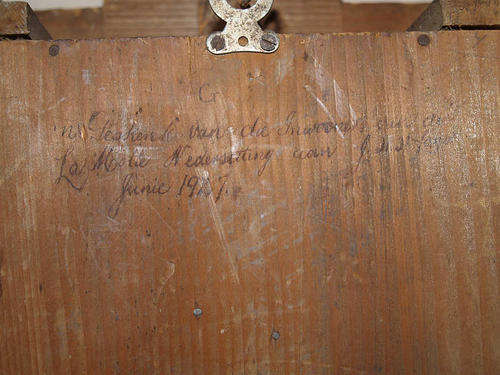 G
n Geskenk van die Inwoners van die
La Motte Nedersetting aan J.
Junie 1927.